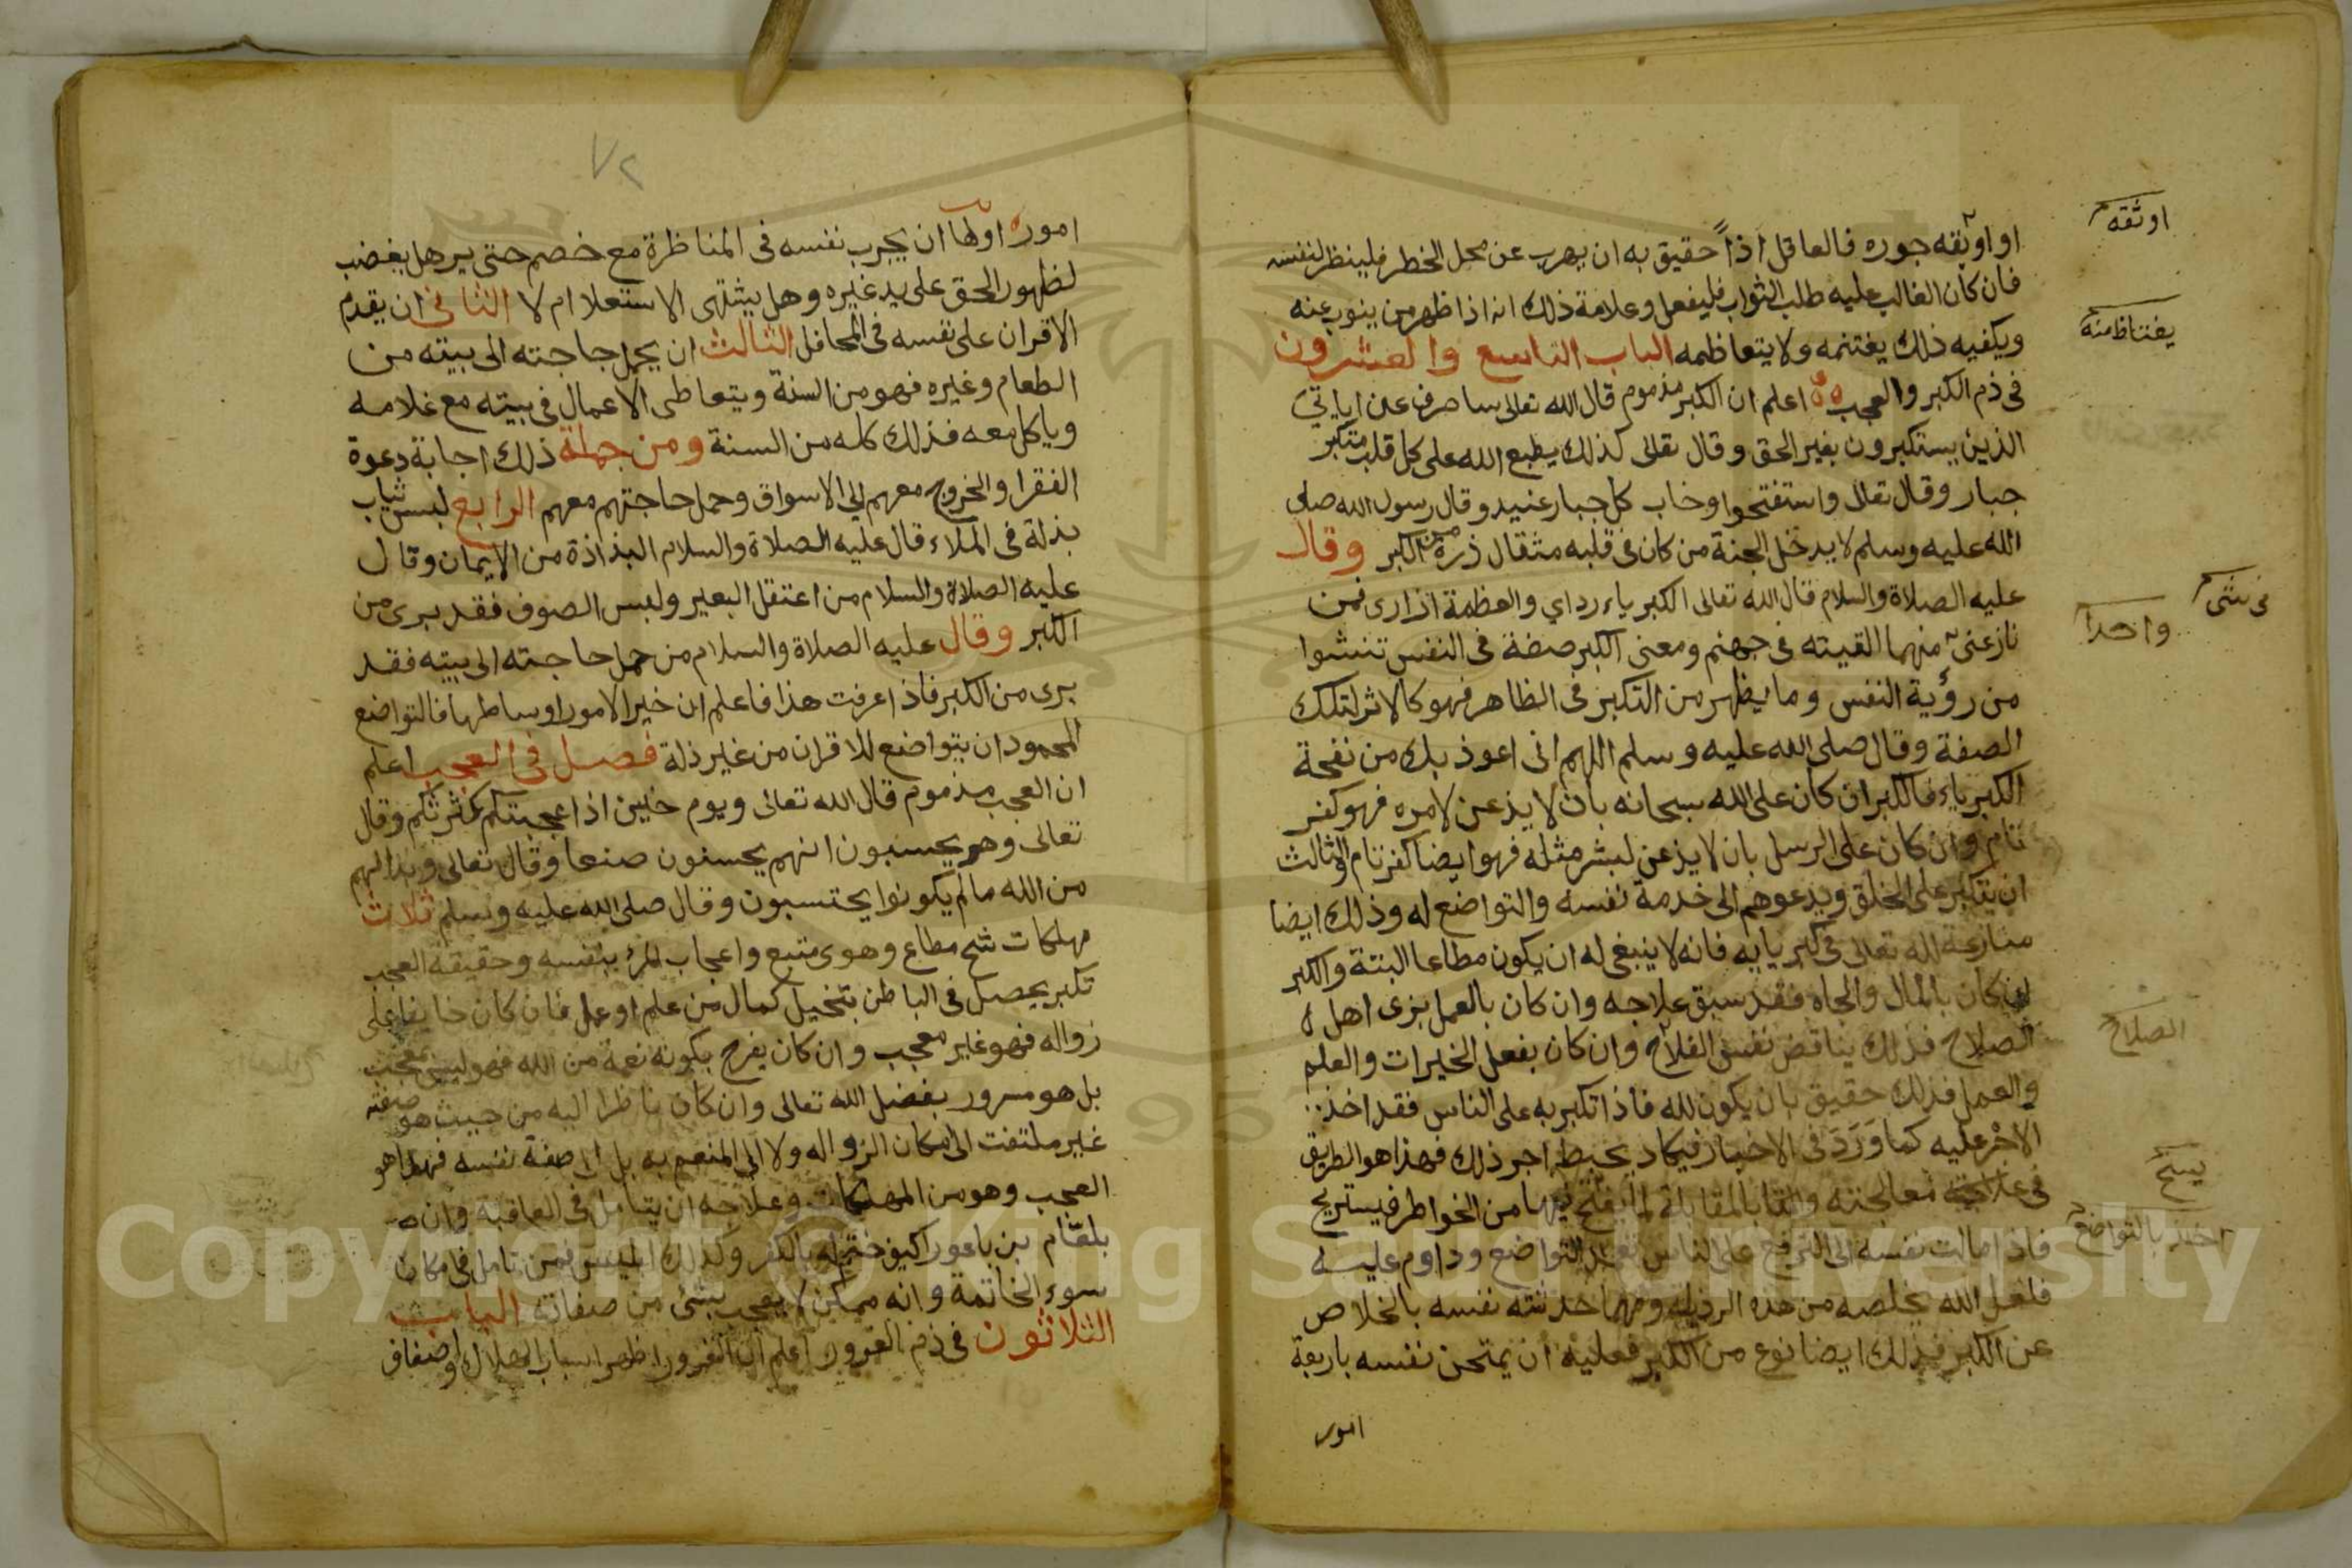 او اوبقه جوره فالعاقل اذاً حقيق به ان يهرب عن محل الخطر فلينظر لنفسه
فان كان الغالب عليه طلب الثواب فليفعل وعلامة ذلك انه اذا ظهر من ينوب عنه
ويكفيه ذلك يغتنمه ولا يتعاظمه الباب التاسع والعشرون
في ذم الكبر والعجب اعلم ان الكبر مذموم قال الله تعالى ساصرف عن اياتي
الذين يستكبرون بغير الحق وقال تعالى كذلك يطبع الله على كل قلب متكبر
جبار وقال تعالى واستفتحوا وخاب كل جبار عنيد وقال رسول الله صلى
الله عليه وسلم لا يدخل الجنة من كان في قلبه مثقال ذرة من الكبر وقال
عليه الصلاة والسلام قال الله تعالى الكبرياء رداي والعظمة ازارى فمن
نازعنى منهما القيته في جهنم ومعنى الكبر صفة في النفس تنشوا
من رؤية النفس وما يظهر من التكبر في الظاهر فهو كالاثر لتلك
الصفة وقال صلى الله عليه وسلم اللهم انى اعوذ بك من نفخة
الكبرياء فالكبر ان كان على الله سبحانه بان لا يذعن لامره فهو كفر
تام وان كان على الرسل بان لا يذعن لبشر مثله فهو ايضا كفر تام الثالث
ان يتكبر على الخلق ويدعوهم الى خدمة نفسه والتواضع له وذلك ايضا
منازعة لله تعالى في كبريايه فانه لا ينبغى له ان يكون مطاعا البتة والكبر
ان كان بالمال والجاه فقد سبق علاجه وان كان بالعمل بزى اهل
الصلاح فذلك يناقض نفس الفلاح وان كان بفعل الخيرات والعلم
والعمل فذلك حقيق بان يكون لله فاذا تكبر به على الناس فقد اخذ
الاجر عليه كما وَرَدَ في الاخبار فيكاد يحبط اجر ذلك فهذا هو الطريق
في علاجه معالجته والقا بالمقابلة لما يفتح فيها من الخواطر فيستريح
فاذا مالت نفسه الى الترفع على الناس تعمد التواضع وداوم عليه
فلعل الله يخلصه من هذه الرذيلة ومهما حدثته نفسه بالخلاص
عن الكبر فذلك ايضا نوع من الكبر فعليه ان يمتحن نفسه باربعة
امور
اوثقه
يغتاظ منه
في شى
واحدا
الصلاح
يسنح
اخذ بالتواضع
٧٢
امور اولها ان يجرب نفسه في المناظرة مع خصم حتى يرى هل يغضب
لظهور الحق على يد غيره وهل يشتهى الاستعلا ام لا الثانى ان يقدم
الاقران على نفسه في المحافل الثالث ان يحمل حاجته الى بيته من
الطعام وغيره فهو من السنة ويتعاطى الاعمال في بيته مع غلامه
وياكل معه فذلك كله من السنة ومن جملة ذلك اجابة دعوة
الفقرا والخروج معهم الي الاسواق وحمل حاجتهم معهم الرابع لبس ثياب
بذلة في الملاء قال عليه الصلاة والسلام البذاذة من الايمان وقال
عليه الصلاة والسلام من اعتقل البعير ولبس الصوف فقد برى من
الكبر وقال عليه الصلاة والسلام من حمل حاجته الى بيته فقد
برى من الكبر فاذا عرفت هذا فاعلم ان خير الامور اوساطها فالتواضع
المحمود ان يتواضع للاقران من غير ذلة فصل في العجب اعلم
ان العجب مذموم قال الله تعالى ويوم حنين اذ اعجبتكم كثرتكم وقال
تعالى وهم يحسبون انهم يحسنون صنعا وقال تعالى وبدا لهم
من الله ما لم يكونوا يحتسبون وقال صلى الله عليه وسلم ثلاث
مهلكات شح مطاع وهوى متبع واعجاب المرء بنفسه وحقيقة العجب
تكبر يحصل في الباطن بتخيل كمال من علم او عمل فان كان خايفا على
زواله فهو غير معجب وان كان يفرح بكونه نعمة من الله فهو ليس بمعجب
بل هو مسرور بفضل الله تعالى وان كان ناظرا اليه من حيث هو صفته
غير ملتفت الى امكان الزوال له ولا الى المنعم به بل الى صفة نفسه فهذا هو
العجب وهو من المهلكات وعلاجه ان يتامل في العاقبة وان
بلعام بن باعورا كيف ختم له بالكفر وكذلك ابليس فمن تامل في مكان
سوء الخاتمة وانه ممكن لا يعجب بشئ من صفاته الباب
الثلاثون في ذم الغرور اعلم ان الغرور اظهر اسباب الهلاك واصناف
Copyright © King Saud University